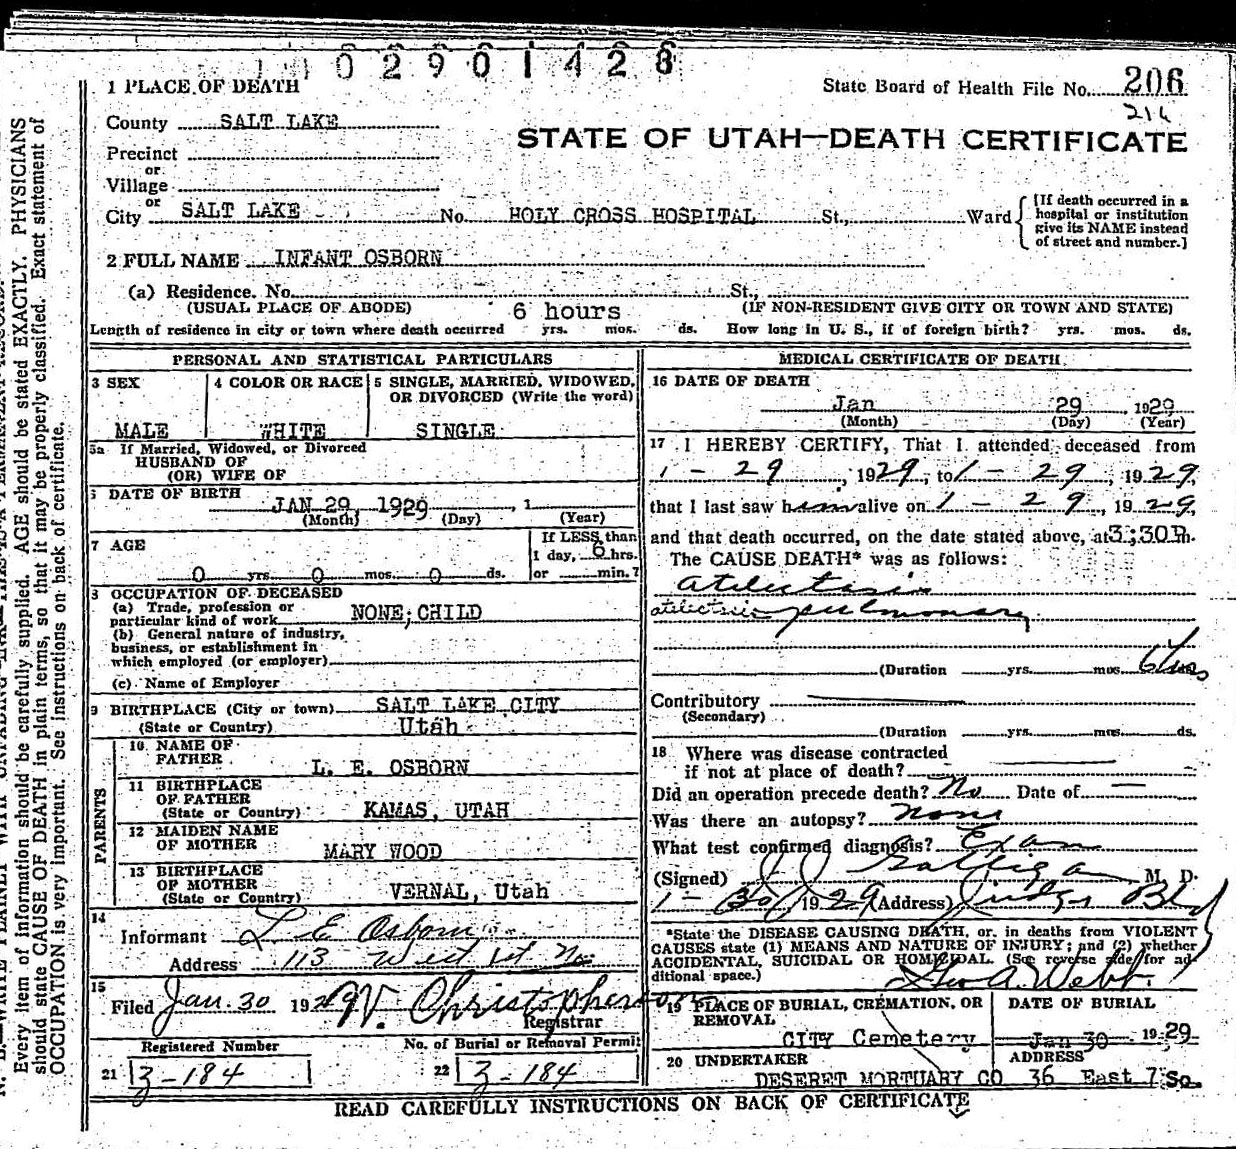 02901428
1 PLACE OF DEATH
State Board of Health File No. 206
County SALT LAKE
STATE OF UTAH—DEATH CERTIFICATE
Precinct
or
Village
or
City SALT LAKE No. HOLY CROSS HOSPITAL St., Ward
[If death occurred in a hospital or institution give its NAME instead of street and number.]
2 FULL NAME INFANT OSBORN
(a) Residence. No. St.,
(USUAL PLACE OF ABODE) (IF NON-RESIDENT GIVE CITY OR TOWN AND STATE)
6 hours
Length of residence in city or town where death occurred yrs. mos. ds. How long in U. S., if of foreign birth? yrs. mos. ds.
PERSONAL AND STATISTICAL PARTICULARS
3 SEX
MALE
4 COLOR OR RACE
WHITE
5 SINGLE, MARRIED, WIDOWED,
OR DIVORCED (Write the word)
SINGLE
5a If Married, Widowed, or Divorced
HUSBAND OF
(OR) WIFE OF
6 DATE OF BIRTH
JAN 29, 1929, 1
(Month) (Day) (Year)
7 AGE
0 yrs 0 mos. 0 ds.
If LESS than
1 day, 6 hrs.
or min.?
8 OCCUPATION OF DECEASED
(a) Trade, profession or
particular kind of work NONE; CHILD
(b) General nature of industry,
business, or establishment in
which employed (or employer)
(c) Name of Employer
9 BIRTHPLACE (City or town) SALT LAKE CITY
(State or Country) Utah
PARENTS
10 NAME OF
FATHER L. E. OSBORN
11 BIRTHPLACE
OF FATHER
(State or Country) KAMAS, UTAH
12 MAIDEN NAME
OF MOTHER MARY WOOD
13 BIRTHPLACE
OF MOTHER
(State or Country) VERNAL, Utah
14
Informant L E Osborn
Address 113 West 1st No.
15
Filed Jan. 30 1929 W. Christopherson
Registrar
Registered Number No. of Burial or Removal Permit
21 Z-184 22 Z-184
MEDICAL CERTIFICATE OF DEATH
16 DATE OF DEATH
Jan 29, 1929
(Month) (Day) (Year)
17 I HEREBY CERTIFY, That I attended deceased from
1 - 29, 1929, to 1 - 29, 1929,
that I last saw him alive on 1 - 29, 1929,
and that death occurred, on the date stated above, at 3:30 P.m.
The CAUSE DEATH* was as follows:
atelectasis
atelectasis pulmonary
(Duration yrs. mos. 6 hrs
Contributory
(Secondary)
(Duration yrs. mos. ds.
18 Where was disease contracted
if not at place of death?
Did an operation precede death? No Date of —
Was there an autopsy? none
What test confirmed diagnosis? Exam
(Signed) J J Galligan M. D.
1-30, 1929 (Address) Judge Bld
*State the DISEASE CAUSING DEATH, or, in deaths from VIOLENT
CAUSES state (1) MEANS AND NATURE OF INJURY; and (2) whether
ACCIDENTAL, SUICIDAL OR HOMICIDAL. (See reverse side for ad-
ditional space.)
Geo A. Webb.
19 PLACE OF BURIAL, CREMATION, OR
REMOVAL
CITY Cemetery
DATE OF BURIAL
Jan 30 1929
20 UNDERTAKER
DESERET MORTUARY CO
ADDRESS
36 East 7 So.
READ CAREFULLY INSTRUCTIONS ON BACK OF CERTIFICATE
Every item of information should be carefully supplied. AGE should be stated EXACTLY. PHYSICIANS
should state CAUSE OF DEATH in plain terms, so that it may be properly classified. Exact statement of
OCCUPATION is very important. See instructions on back of certificate.